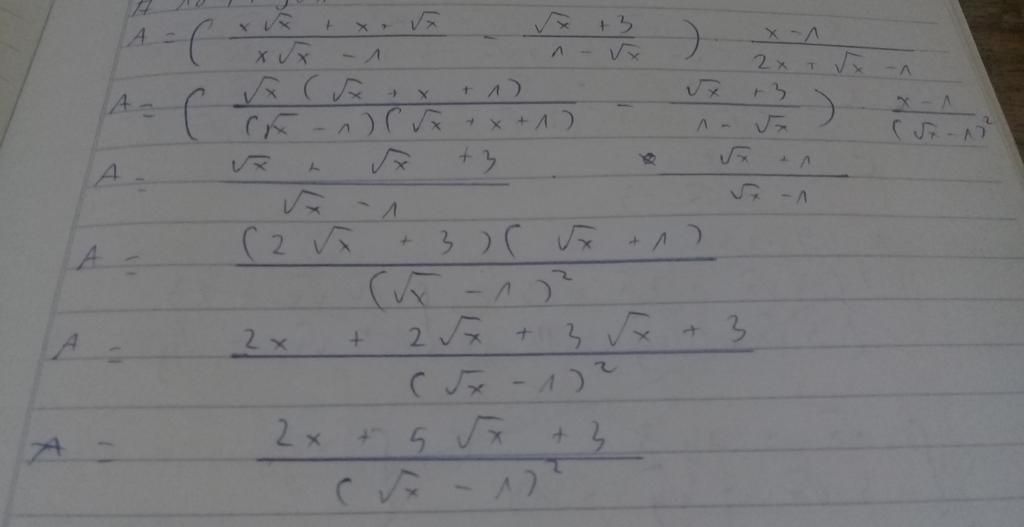 A = ( (x√x + x + √x)/(x√x - 1) - (√x + 3)/(1 - √x) ) . (x - 1)/(2x + √x - 1)
A = ( (√x (√x + x + 1))/((√x - 1)(√x + x + 1)) - (√x + 3)/(1 - √x) ) . (x - 1)/(√x - 1)²
A = (√x + √x + 3)/(√x - 1) . (√x + 1)/(√x - 1)
A = ((2√x + 3)(√x + 1))/(√x - 1)²
A = (2x + 2√x + 3√x + 3)/(√x - 1)²
A = (2x + 5√x + 3)/(√x - 1)²